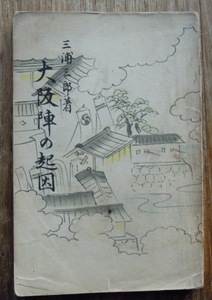 三浦三郎著
大阪陣の起因